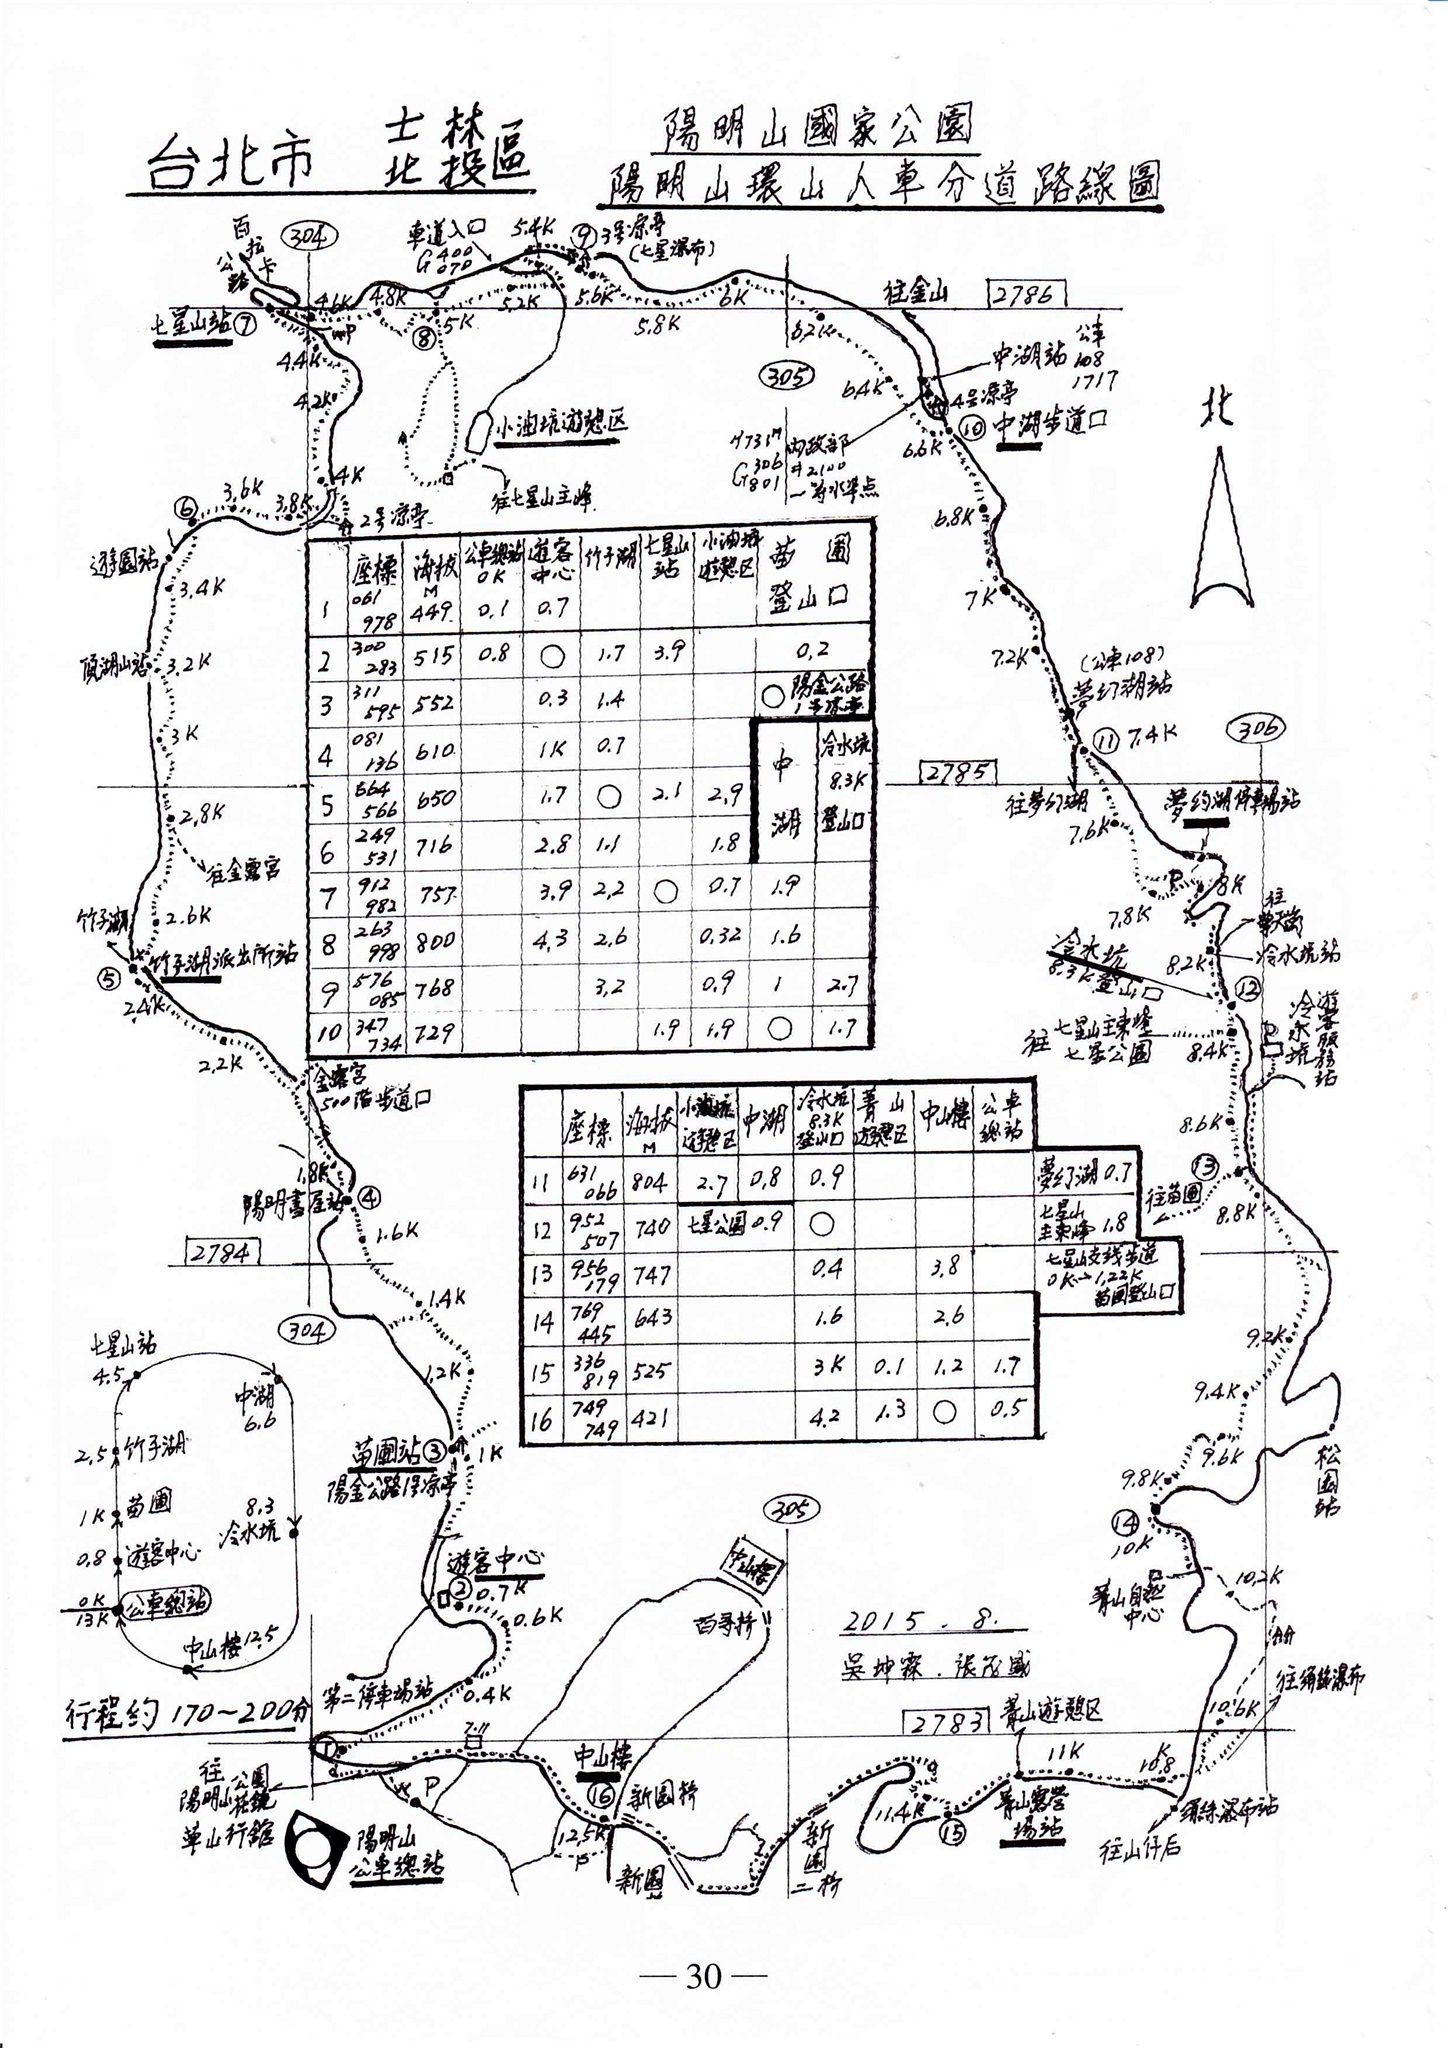 台北市 士林
北投區
陽明山國家公園
陽明山環山人車分道路線圖
百拉卡
公路
304
車道入口
G 400
070
5.4K
⑨ 3号凉亭
(七星瀑布)
往金山
2786
七星山站 ⑦
4.6K
4.8K
⑧
5K
5.2K
5.6K
5.8K
6K
6.2K
4.4K
4.2K
305
6.4K
中湖站
公車
108
1717
4号凉亭
⑩ 中湖步道口
6.6K
北
小油坑遊憩区
往七星山主峰
H7317
G 306
801
内政部
#2100
一等水準点
⑥
3.6K
3.8K
4K
2号凉亭
6.8K
遊園站
3.4K
頂湖山站
3.2K
3K
2.8K
往金露宮
2.6K
竹子湖
⑤
竹子湖派出所站
2.4K
2.2K
金露宮
500階步道口
1.8K
陽明書屋站 ④
2784
1.6K
1.4K
304
1.2K
7K
7.2K
(公車108)
夢幻湖站
⑪ 7.4K
306
2785
往夢幻湖
夢幻湖停車場站
7.6K
7.8K
P
8K
往擎天崗
冷水坑
8.3K 登山口
8.2K
冷水坑站
⑫
往 七星山主東峰
七星公園
8.4K
冷水坑
遊客服務站
P
8.6K
⑬
往苗圃
8.8K
座標 海拔 M 公車總站 0K 遊客中心 竹子湖 七星山站 小油坑遊憩区 苗圃登山口
1 061 978 449 0.1 0.7
2 300 283 515 0.8 ○ 1.7 3.9 0.2
3 311 595 552 0.3 1.4 ○ 陽金公路1号凉亭
4 081 136 610 1K 0.7 中湖 冷水坑 8.3K 登山口
5 664 566 650 1.7 ○ 2.1 2.9
6 249 531 716 2.8 1.1 1.8
7 912 982 757 3.9 2.2 ○ 0.7 1.9
8 263 998 800 4.3 2.6 0.32 1.6
9 576 085 768 3.2 0.9 1 2.7
10 347 734 729 1.9 1.9 ○ 1.7
座標 海拔 M 小油坑遊憩区 中湖 冷水坑 8.3K 登山口 菁山遊憩区 中山樓 公車總站
11 631 066 804 2.7 0.8 0.9 夢幻湖 0.7
12 952 507 740 七星公園 0.9 ○ 七星山主東峰 1.8
13 956 179 747 0.4 3.8 七星山支线步道 0K→1.22K 苗圃登山口
14 769 445 643 1.6 2.6
15 336 819 525 3K 0.1 1.2 1.7
16 749 749 421 4.2 1.3 ○ 0.5
9.2K
9.4K
9.6K
9.8K
松園站
⑭
10K
菁山自然
中心
10.2K
往絹絲瀑布
10.6K
七星山站
4.5
中湖
6.6
2.5 竹子湖
1K 苗圃
8.3
冷水坑
0.8 遊客中心
0K
13K
公車總站
中山樓 12.5
行程約 170~200分
苗圃站 ③
陽金公路1号凉亭
1K
305
遊客中心
② 0.7K
0.6K
中山樓
百哥桥
2015.8.
吳坤霖.張茂盛
第二停車場站
0.4K
2783
菁山遊憩区
①
7.11
往
陽明山公園
花鐘
草山行館
P
陽明山
公車總站
中山樓
⑯
新园桥
12.5K
P
新園
新園二桥
11.4K
⑮
11K
10.8K
菁山露營
場站
絹絲瀑布站
往山仔后
— 30 —